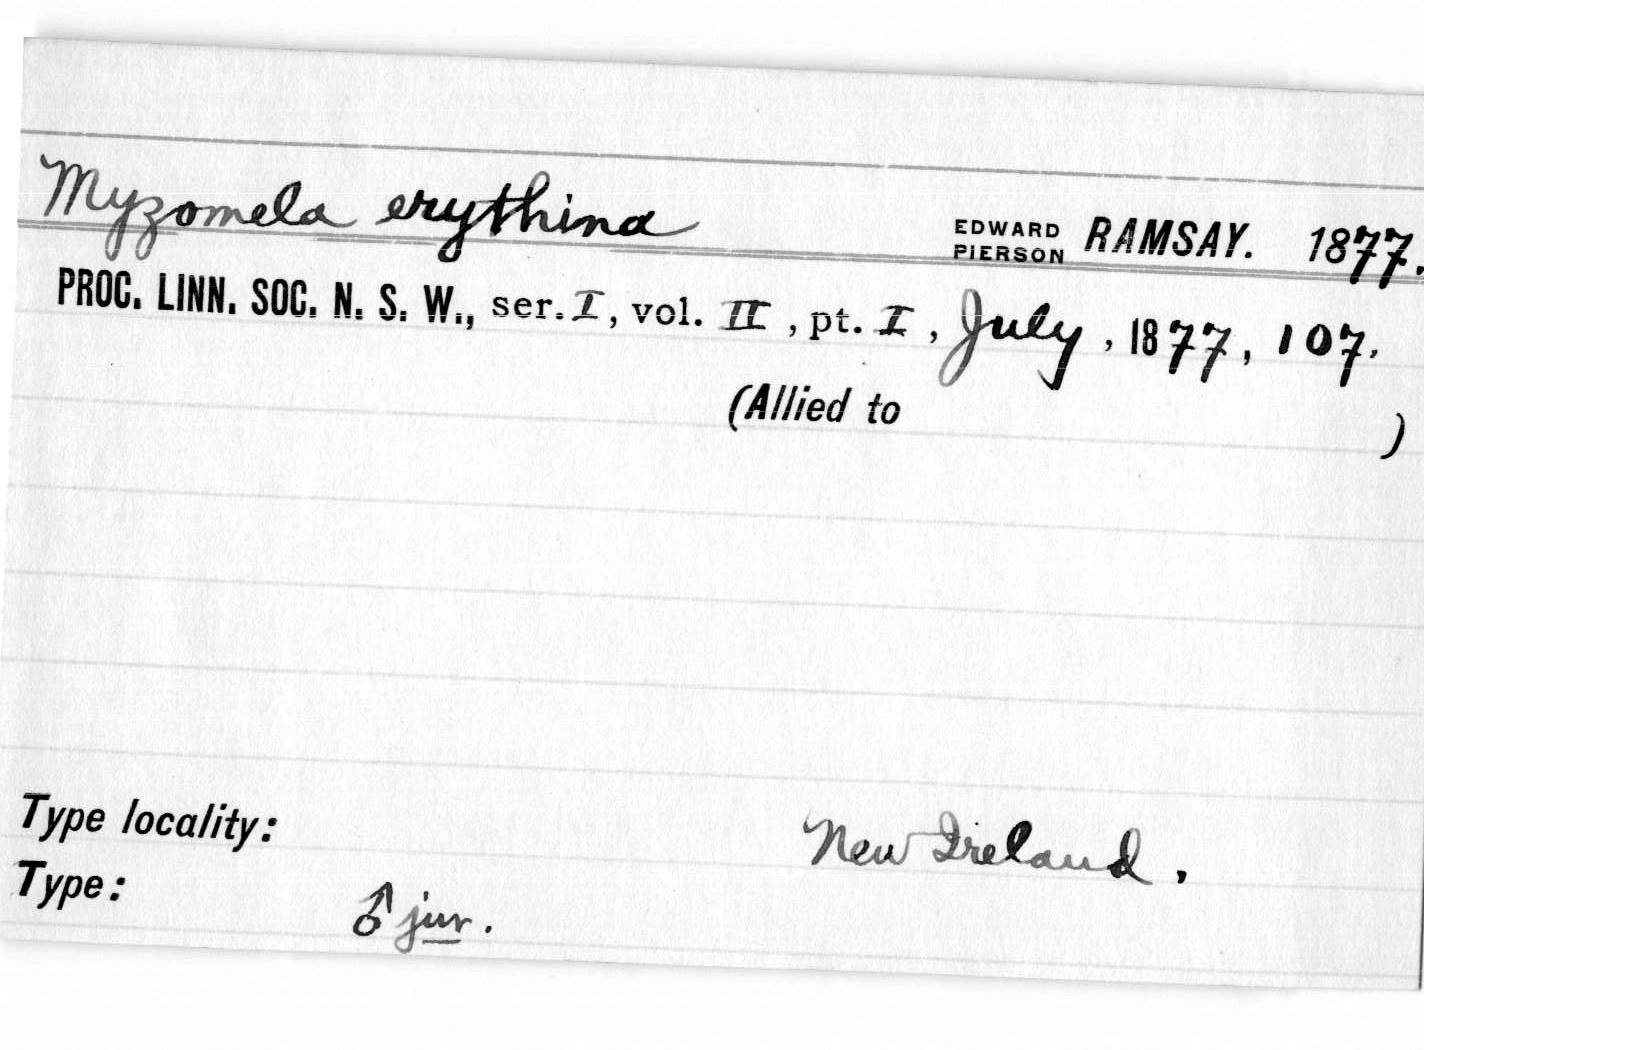 Myzomela erythina EDWARD PIERSON RAMSAY. 1877.
PROC. LINN. SOC. N. S. W., ser. I, vol. II, pt. I, July, 1877, 107.
(Allied to )
Type locality: New Ireland.
Type: ♂ juv.